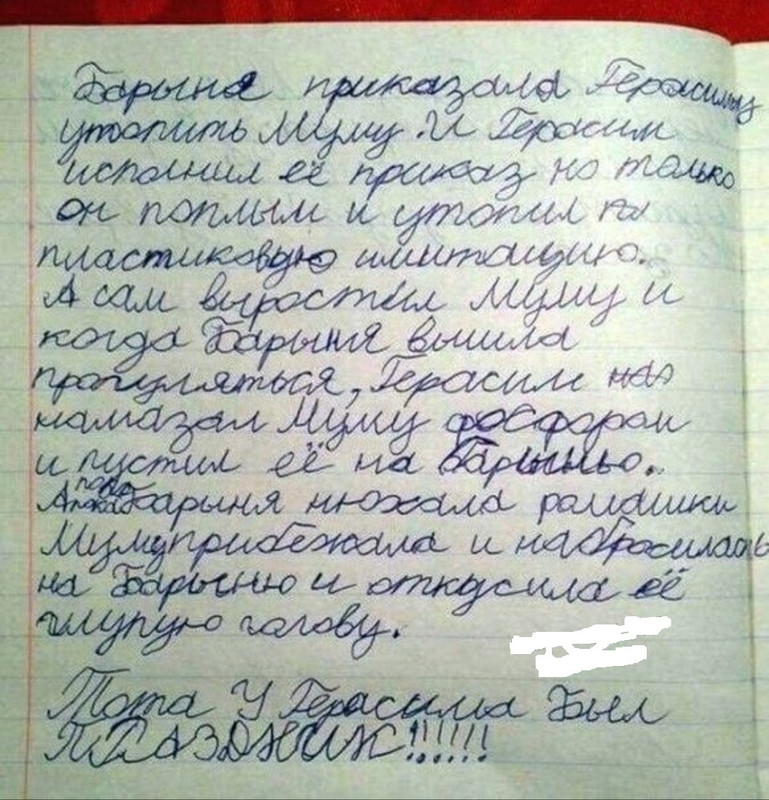 Барыня приказала Герасиму
утопить Муму. И Герасим
исполнил её приказ но только
он поплым и утопил
пластиковую имитацию.
А сам выростил Муму и
когда Барыня вышла
прогуляться, Герасим
намазал Муму фосфором
и пустил её на Барыню.
А пока Барыня нюхала ромашки
Муму прибежала и набросилась
на Барыню и откусила её
глупую голову.
Тота У Герасима Был
ПРАЗДНИК!!!!!!